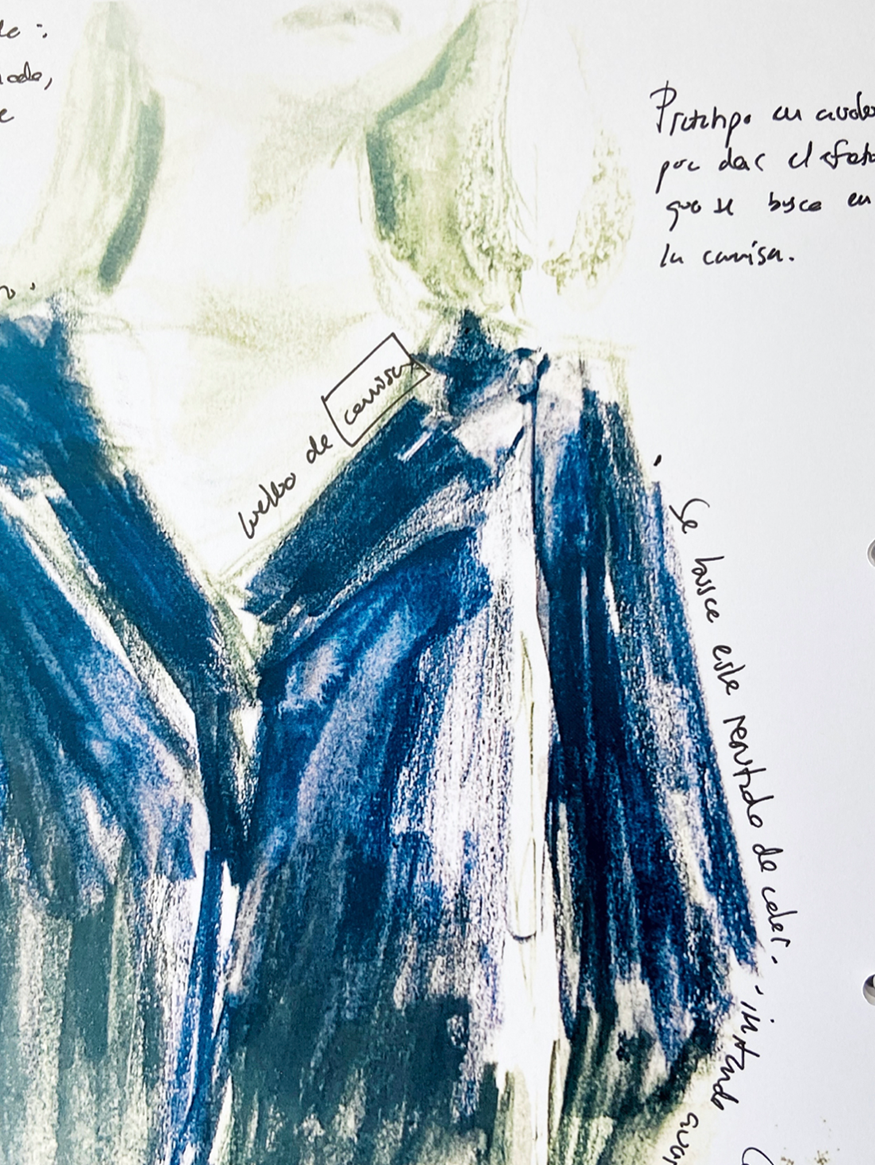 Prototipo en
por dar el efecto
que se busca en
la camisa.
cuello de camisa
Se busca este sentido de color.
- imitando